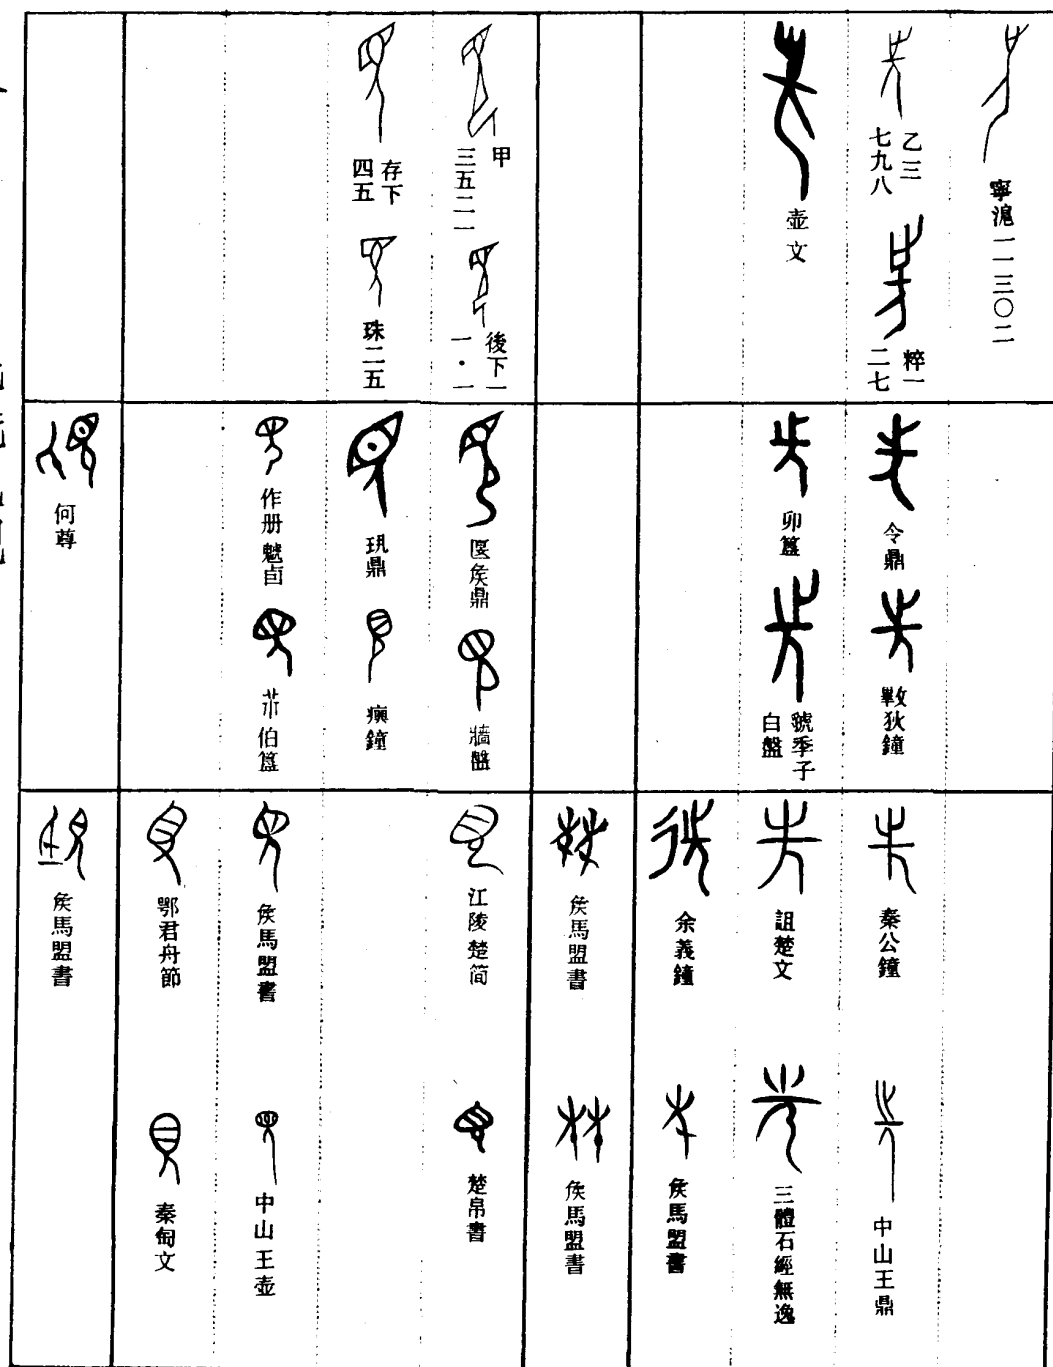 寧滬一一三〇二
乙三
七九八
粹一
二七
壺文
甲
三五二一
後下一
一·一
存下
四五
珠二五
令鼎
㪤狄鐘
卯簋
虢季子
白盤
匽侯鼎
牆盤
𤣩鼎
𤼈鐘
作册䰧卣
伯簋
何尊
秦公鐘
中山王鼎
詛楚文
三體石經無逸
余義鐘
侯馬盟書
侯馬盟書
侯馬盟書
江陵楚简
楚帛書
侯馬盟書
中山王壺
鄂君舟節
秦匋文
侯馬盟書